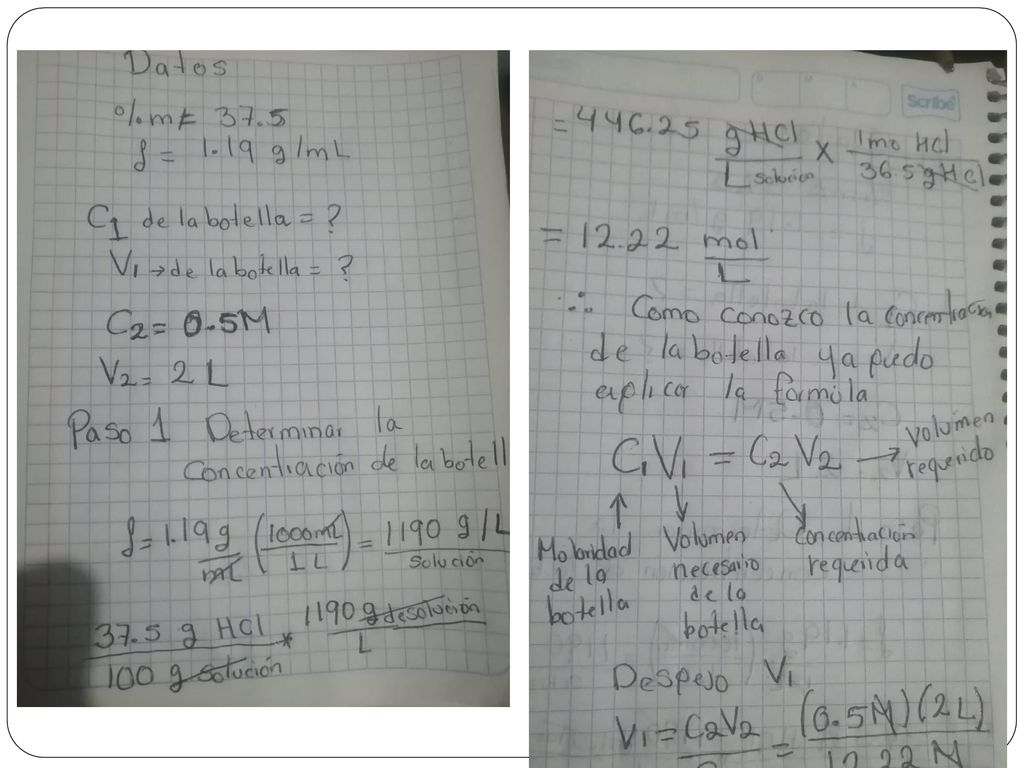 Datos
%m= 37.5
ρ = 1.19 g/mL
C1 de la botella = ?
V1 → de la botella = ?
C2 = 0.5M
V2 = 2 L
Paso 1 Determinar la
Concentración de la botell
ρ = 1.19 g/mL (1000 mL/1 L) = 1190 g/L solución
37.5 g HCl/100 g solución * 1190 g de solución/L
Scribe
= 446.25 g HCl/L solución x 1mo HCl/36.5 g HCl
= 12.22 mol/L
∴ Como conozco la concentración
de la botella ya puedo
aplicar la formula
C1V1 = C2V2 → volumen requerido
Molaridad de la botella
Volumen necesario de la botella
Concentración requerida
Despejo V1
V1 = C2V2 = (0.5M)(2L)/12.22 M